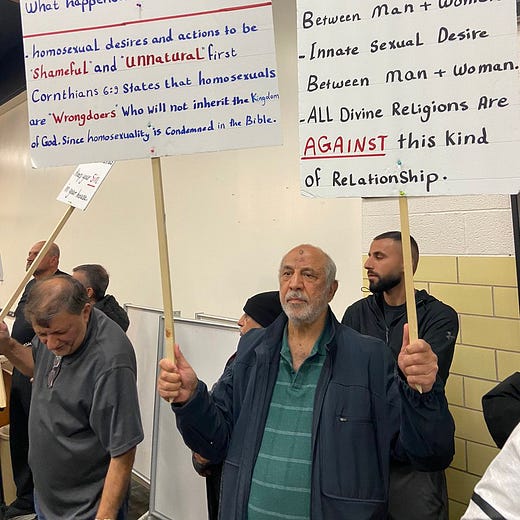 What happen
- homosexual desires and actions to be
"Shameful" and "Unnatural" first
Cornthians 6:9 States that homosexuals
are "Wrongdoers" Who will not inherit the Kingdom
of God. Since homosexuality is Condemned in the Bible.
Between Man + Woman
- Innate Sexual Desire
Between Man + Woman.
- ALL Divine Religions Are
AGAINST this kind
of Relationship.
your